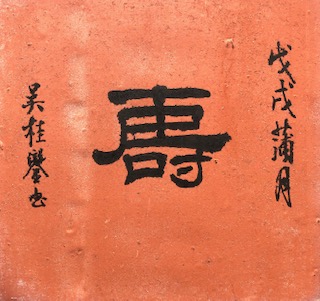 戊戌蒲月
壽
吴桂鑾书